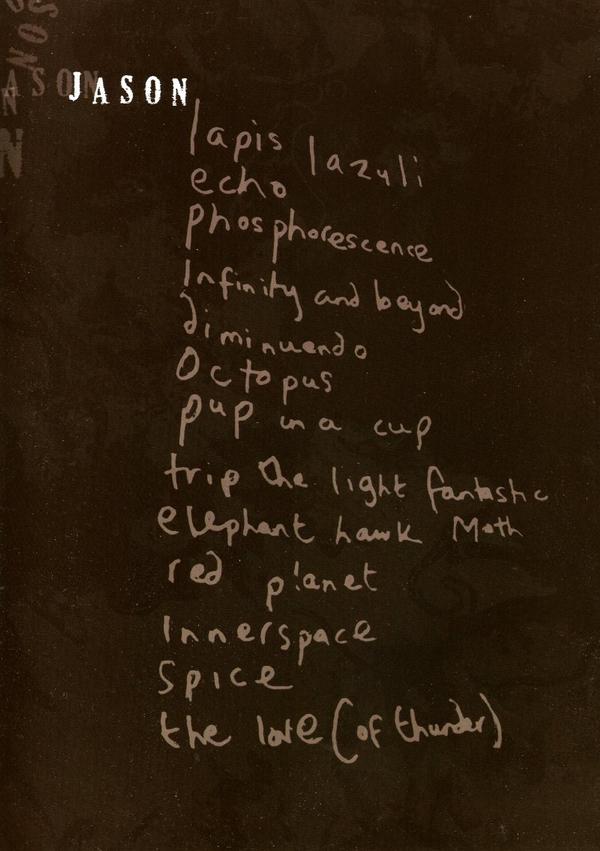 JASON
lapis lazuli
echo
phosphorescence
Infinity and beyond
diminuendo
Octopus
pup in a cup
trip the light fantastic
elephant hawk Moth
red planet
Innerspace
Spice
the love (of thunder)